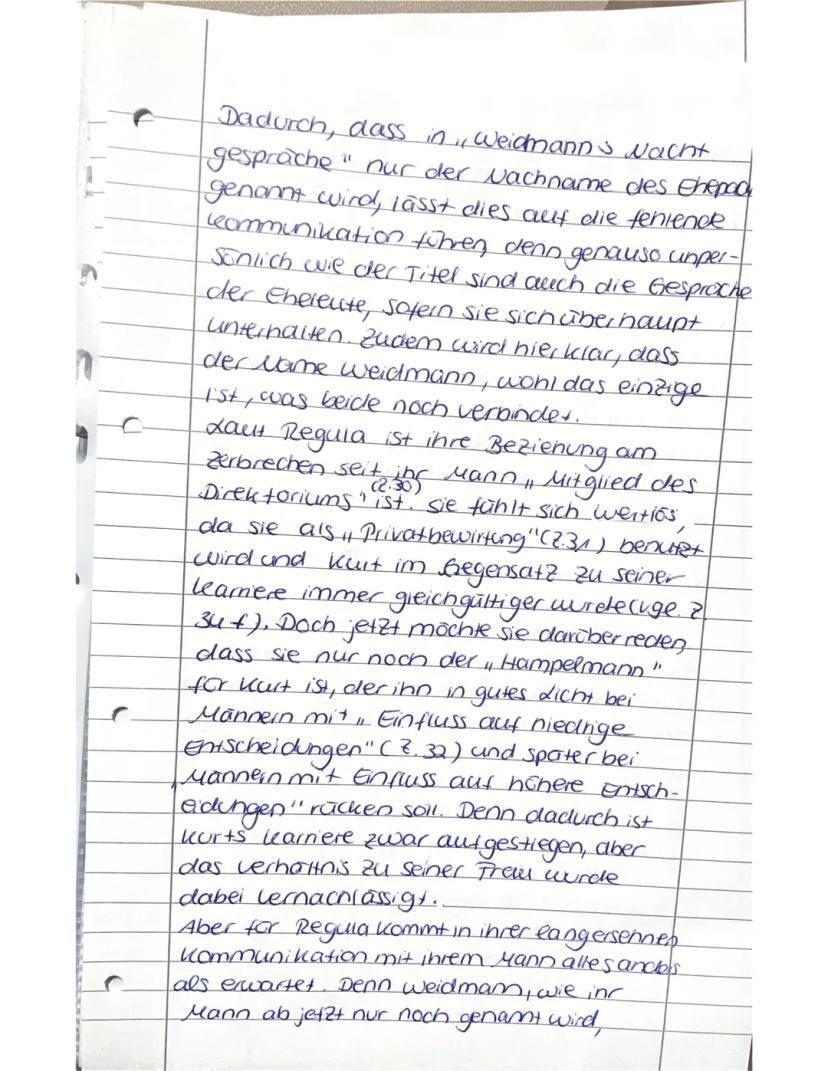 Dadurch, dass in „Weidmanns Nacht
gespräche" nur der Nachname des Ehepaa
genannt wird, lässt dies auf die fehlende
Kommunikation führen, denn genauso unper-
sönlich wie der Titel sind auch die Gespräche
der Eheleute, sofern sie sich überhaupt
unterhalten. Zudem wird hier klar, dass
der Name Weidmann, wohl das einzige
ist, was beide noch verbindet.
Laut Regula ist ihre Beziehung am
zerbrechen seit ihr Mann „Mitglied des
Direktoriums" (Z.30) ist. Sie fühlt sich wertlos,
da sie als „Privatbewirtung" (Z.31) benutzt
wird und Kurt im Gegensatz zu seiner
Karriere immer gleichgültiger wurde (vge. Z.
34 f). Doch jetzt möchte sie darüber reden,
dass sie nur noch der „Hampelmann"
für Kurt ist, der ihn in gutes Licht bei
Männern mit „Einfluss auf niedrige
Entscheidungen" (Z.32) und später bei
„Männern mit Einfluss auf höhere Entsch-
eidungen" rücken soll. Denn dadurch ist
Kurts Karriere zwar aufgestiegen, aber
das Verhältnis zu seiner Frau wurde
dabei vernachlässigt.
Aber für Regula kommt in ihrer langersehnten
Kommunikation mit ihrem Mann alles anders
als erwartet. Denn Weidmann, wie ihr
Mann ab jetzt nur noch genannt wird,